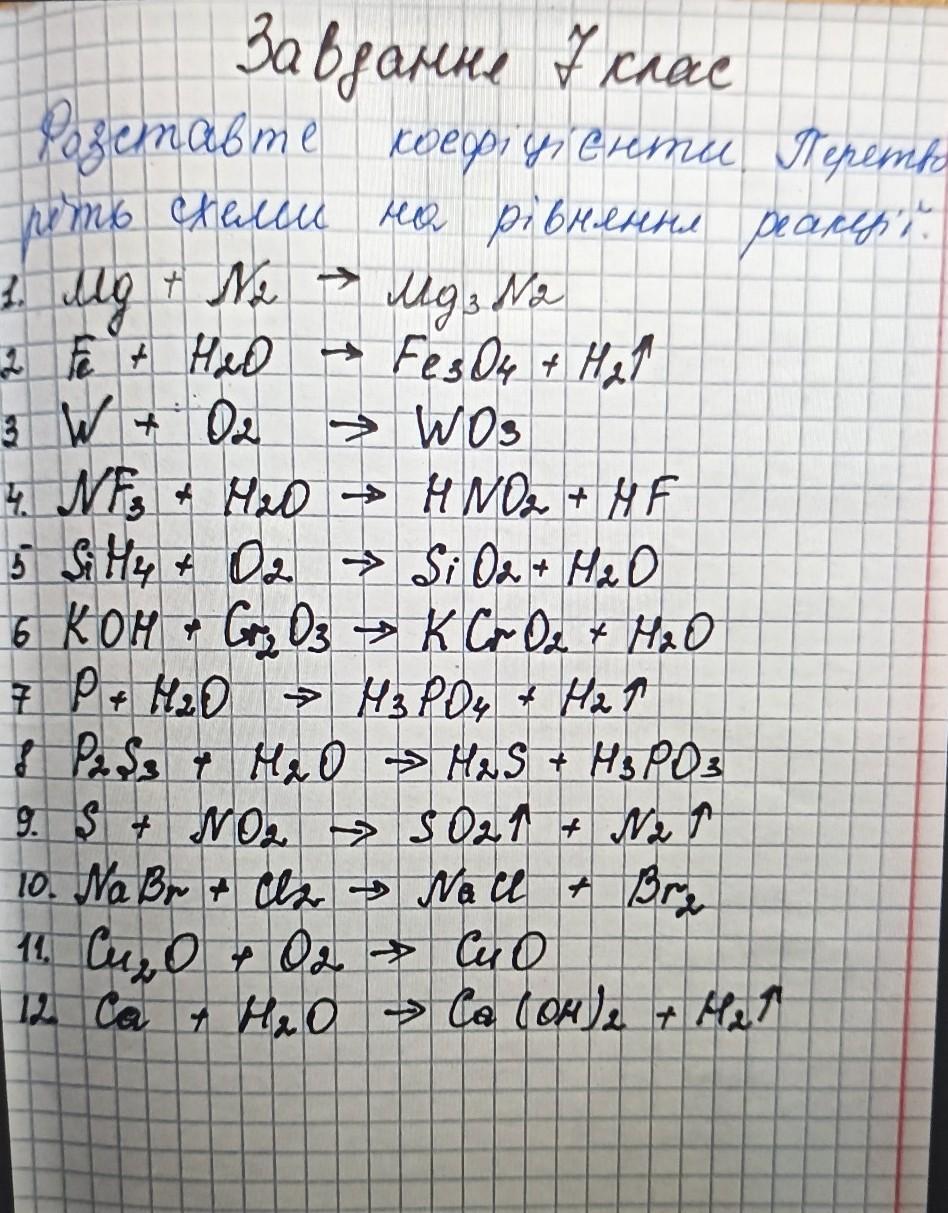 Завдання 7 клас
Розставте коефіцієнти. Перетво
ріть схеми на рівняння реакції.
1. Mg + N2 → Mg3N2
2 Fe + H2O → Fe3O4 + H2↑
3 W + O2 → WO3
4. NF3 + H2O → HNO2 + HF
5 SiH4 + O2 → SiO2 + H2O
6 KOH + Cr2O3 → KCrO2 + H2O
7 P + H2O → H3PO4 + H2↑
8 P2S3 + H2O → H2S + H3PO3
9. S + NO2 → SO2↑ + N2↑
10. NaBr + Cl2 → NaCl + Br2
11. Cu2O + O2 → CuO
12. Ca + H2O → Ca(OH)2 + H2↑